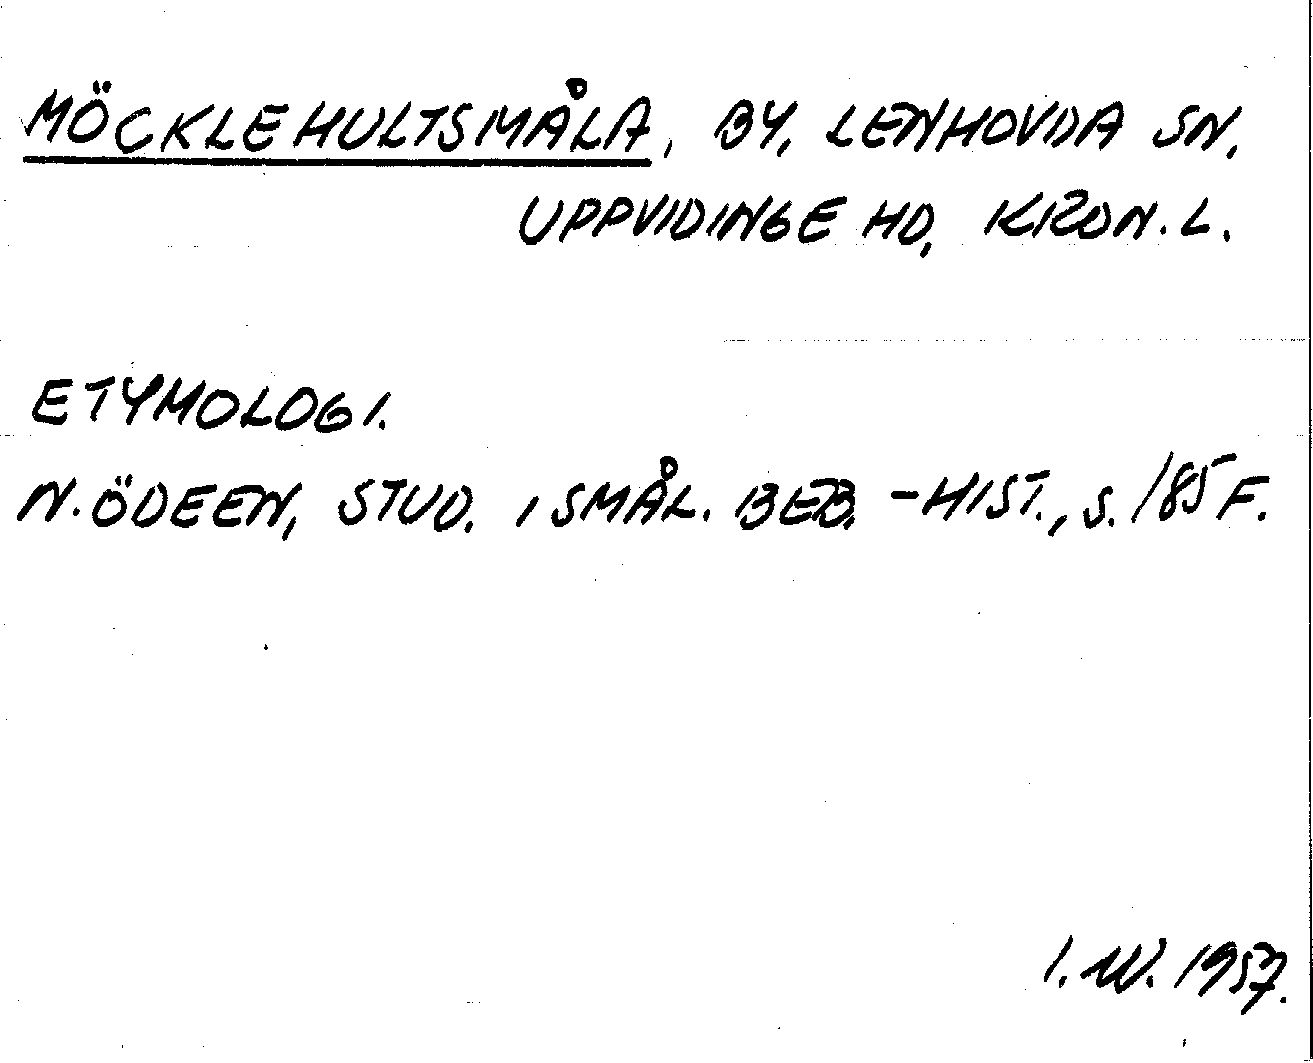 MÖCKLEHULTSMÅLA, BY, LENHOVDA SN,
UPPVIDINGE HD, KRON. L.
ETYMOLOGI.
N. ÖDEEN, STUD. I SMÅL. BEB. -HIST., S. 185 F.
I. W. 1957.